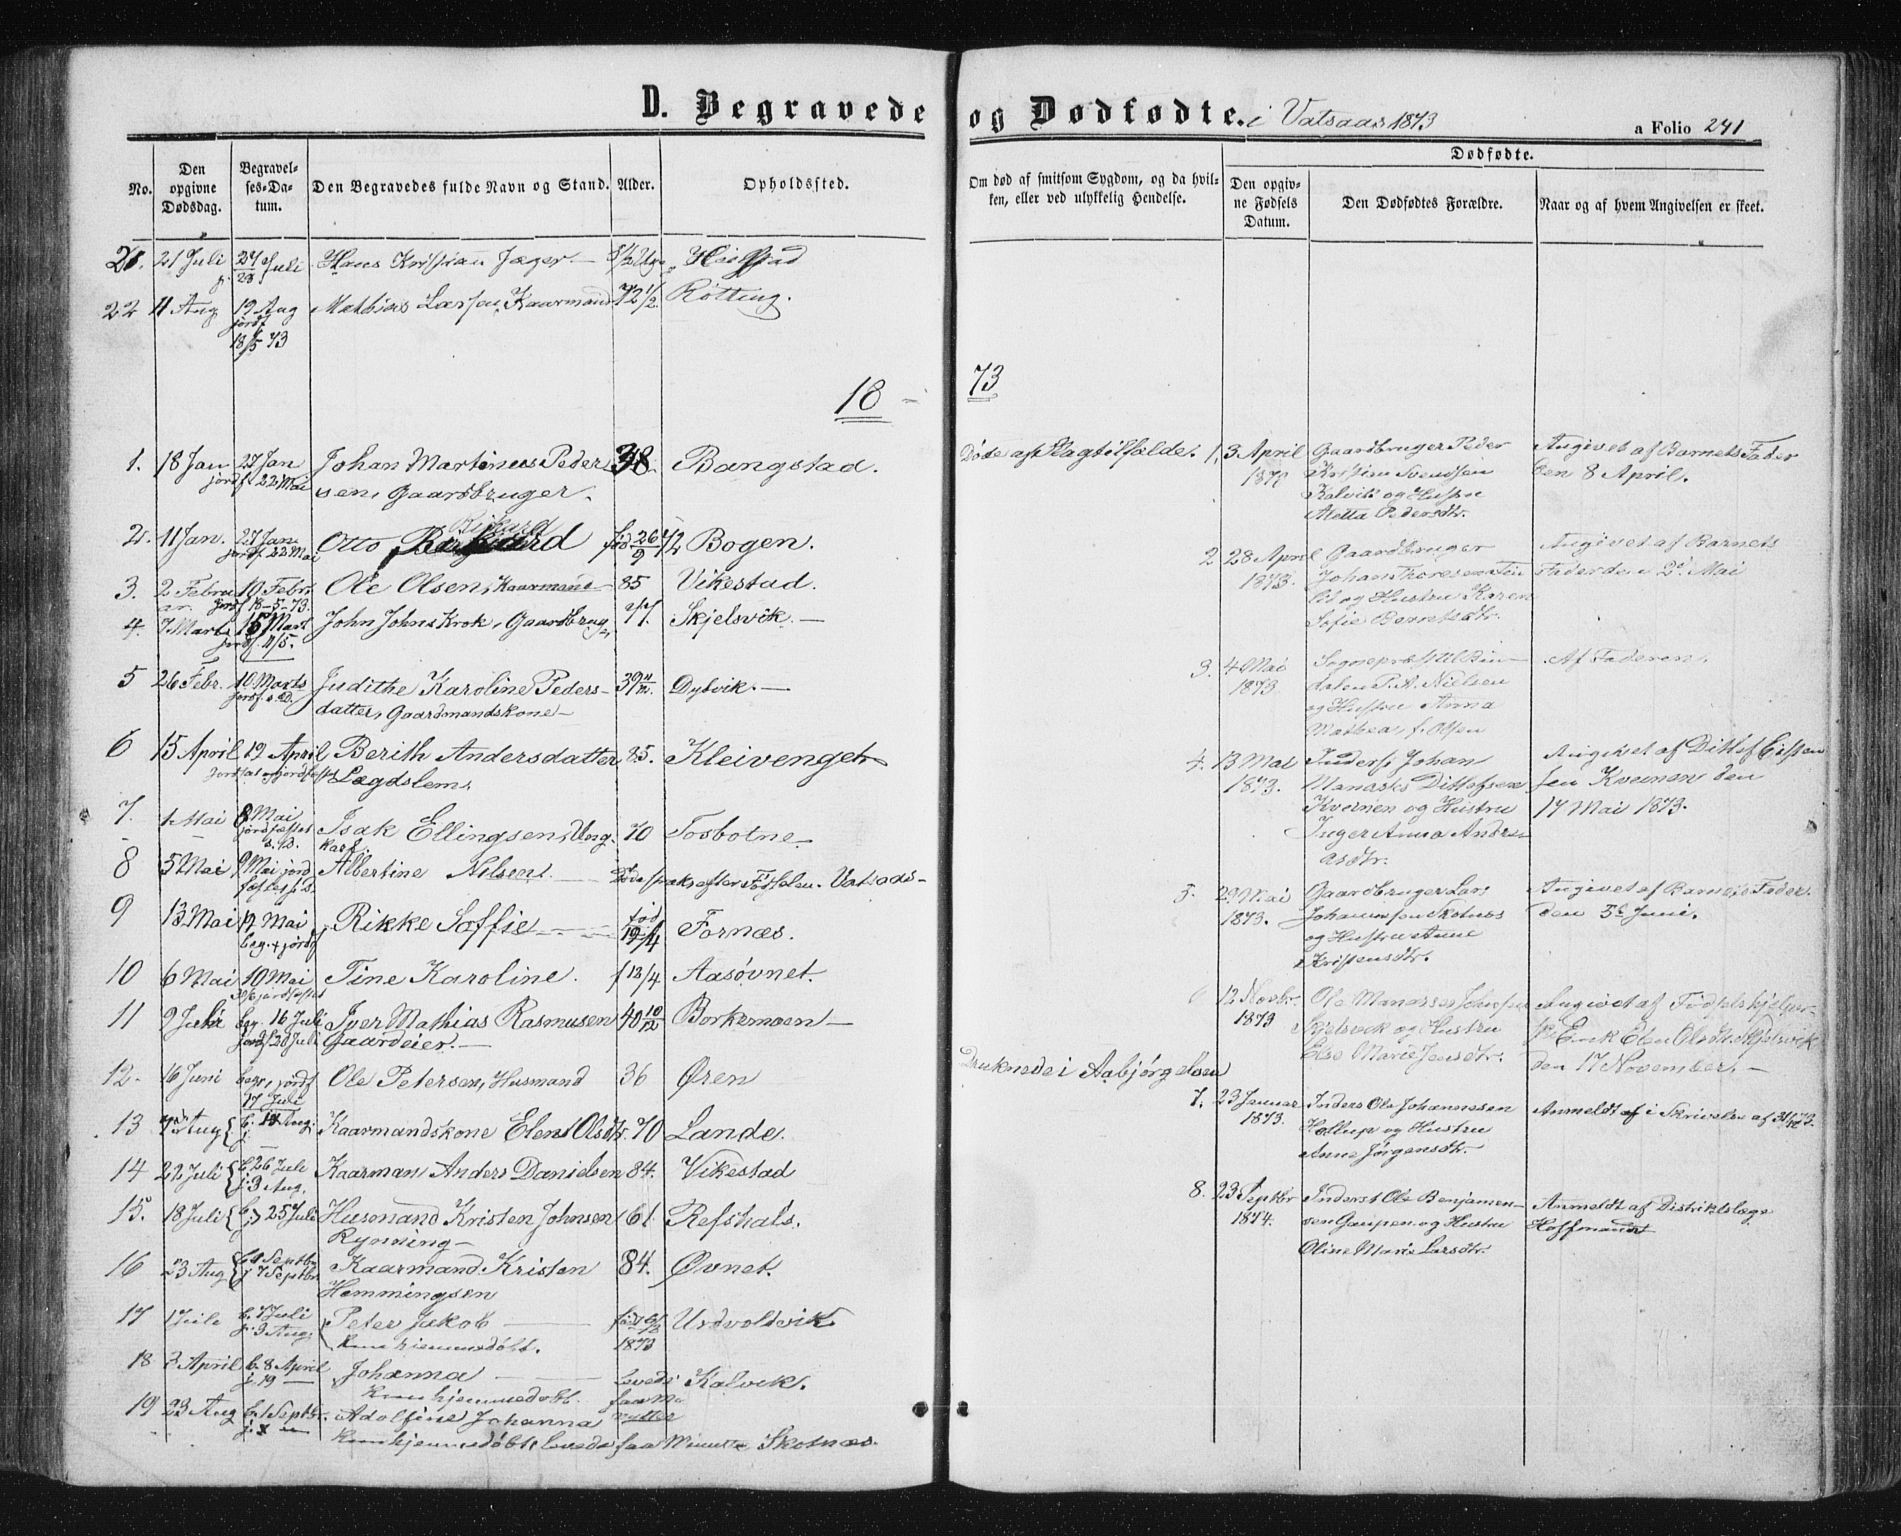 D. Begravede og Dødfødte. i Vatsaas 1873
a Folio 241
No.
Den opgivne Dødsdag.
Begravelses-Datum.
Den Begravedes fulde Navn og Stand.
Alder.
Opholdssted.
Om død af smitsom Sygdom, og da hvilken, eller ved ulykkelig Hendelse.
Dødfødte.
Den opgivne Fødsels Datum.
Den Dødfødtes Forældre.
Naar og af hvem Angivelsen er skeet.
21. 21 Juli 27 Juli Hans Kristian Jæger
22 11 Aug 19 Aug Mathias Larsen, Kaarmand 72 1/2 Røtting.
jordf
18/5 73
18 - 73
1. 18 Jan 27 Jan Johan Martinus Peder 38. Bangstad. Døde af Slagtilfælde.
jordf 22 Mai sen, Gaardbruger.
2. 11 Jan. 27 Jan Otto Bogen.
jordf 22 Mai
3. 2 Febru 10 Febr. Ole Olsen, Kaarmand 85 Vikestad.
ar. jordf 18-5-73.
4. 7 Marts 15 Mart John Johns Krok, Gaardbrug 77. Skjelsvik.
jordf 11/5.
5 26 Febr. 10 Marts Judithe Karoline Peders- 39 11/12 Dybvik.
jordf. s. D. datter, Gaardmandskone
6 15 April 19 April Berith Andersdatter 85. Kleivenget
Lægdslem.
7. 1 Mai 8 Mai Isak Ellingsen, Ung 70 Tosbotne
jordfæstet s. D. karl.
8 5 Mai 9 Mai jord Albertine Nilsen Døde straks efter Fødselen. Vatsaas
fæstes s. D.
9 13 Mai 17 Mai Rikke Soffie fød 19/4 Fornæs.
beg. + jordf
10 6 Mai 10 Mai Tine Karoline. f 13/4 Aasøvnet.
jordfæstet
11 9 Juli beg. 16 Juli Iver Mathias Rasmusen 40 10/12 Borkemoen
jordf 20 Juli Gaardeier.
12. 16 Juni begr. jordf Ole Petersen, Husmand 36 Øren Druknede i Aabjørgelven
17 Juli
13 Aug Kaarmandskone Elen Olsdtr. 70 Lande.
14 22 Juli b. 26 Juli Kaarman Anders Danielsen 84. Vikestad
j. 3 Aug.
15. 18 Juli b. j. 25 Juli Husmand Kristen Johnsen 61. Refshals.
Rynning
16 23 Aug Septbr Kaarmand Kristen 84. Øvnet.
j 7 Septbr Hemmingsen
17 1 Juli b. 7 Juli Peter Jakob 1873 Urdvoldvik
j. 3 Aug. hjemmedøbt.
18 7 April b. 8 April Johanna levede Kalvik.
j. 19 hjemmedøbt. faa Mi
nutter
19 23 Aug b. 1 Septbr. Adolfine Johanna
hjemmedøbt, levede faa Minutter Skotnæs.
1. 3 April Gaardbruger Peder Angivet af Barnets Fader
Kristian Svendsen den 8 April.
Kalvik og Hustru
Aletta Pedersdtr.
2 28 April Gaardbruger Angivet af Barnets
1873. Johan Thoresen Fader den 2d Mai
og Hustru Karen
Sofie Berntsdtr.
3. 4 Mai Sogneprest til Bin- Af Faderen.
1873 dalen P. A. Nielsen
og Hustru Anna
Mathea, f. Olsen
4. 13 Mai Inderst Johan Angivet af Ditlef Eilsten
1873. Manasks Ditlefsen sen Kvernen den
Kvernen og Hustru 17 Mai 1873.
Inger Anna Andre
asdtr.
5. 29 Mai Gaardbruger Lars Angivet af Barnets Fader
1873. Johannssen Skotnes den 3d Juni.
og Hustru Anne
Kristensdtr.
6 12 Novbr. Ole Manasses Angivet af Fødselshjelper
1873 Skjelsvik og Hustru Enke Elen Olsdtr. Skjelsvik
Else Marie Jensdtr. den 17 November.
7. 23 Januar Inderst Ole Johannesen Anmeldt af i Skrivelse af
1873. Hollup og Hustru
Anne Jørgensdtr.
8. 23 Septbr Inderst Ole Benjamen- Anmeldt af Distriktslæge
1874. sen Gaupen og Hustru Hoffmandt
Oline Marie Larsdtr.